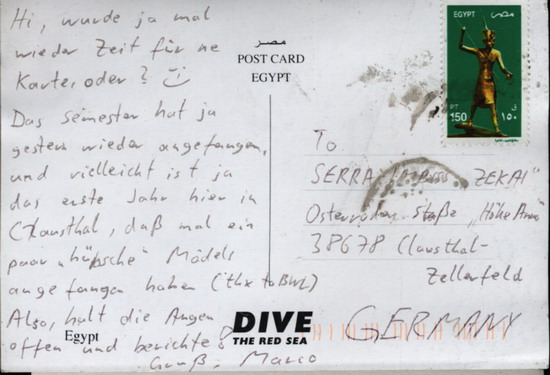 Hi, wurde ja mal
wieder Zeit für ne
Karte, oder?
Das Semester hat ja
gestern wieder angefangen,
und vielleicht ist ja
das erste Jahr hier in
Clausthal, daß mal ein
paar „hübsche" Mädels
angefangen haben (thx to BWL)
Also, halt die Augen
offen und berichte!
Gruß, Marco
Egypt
مصر
POST CARD
EGYPT
DIVE
THE RED SEA
EGYPT مصر
PT 150
ق ١٥٠
To
SERRA ZEKAI"
Osteröder Staße „Höhe
38678 Clausthal-
Zellerfeld
GERMANY